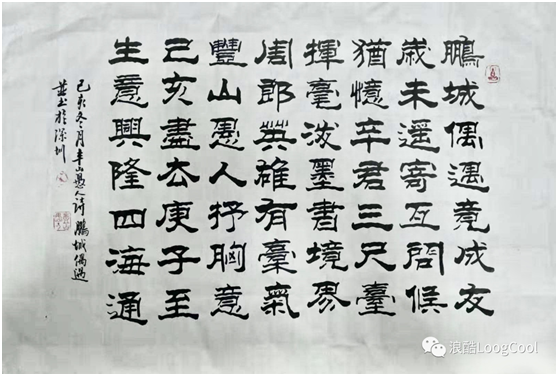 鵬城偶遇竟成友
歲未遥寄互問候
猶憶辛君三尺臺
揮毫潑墨書境界
周郎英雄有豪氣
豐山愚人抒胸意
己亥盡去庚子至
生意興隆四海通
己亥冬月丰山愚人诗鵬城偶遇
並书於深圳
浪酷LoogCool